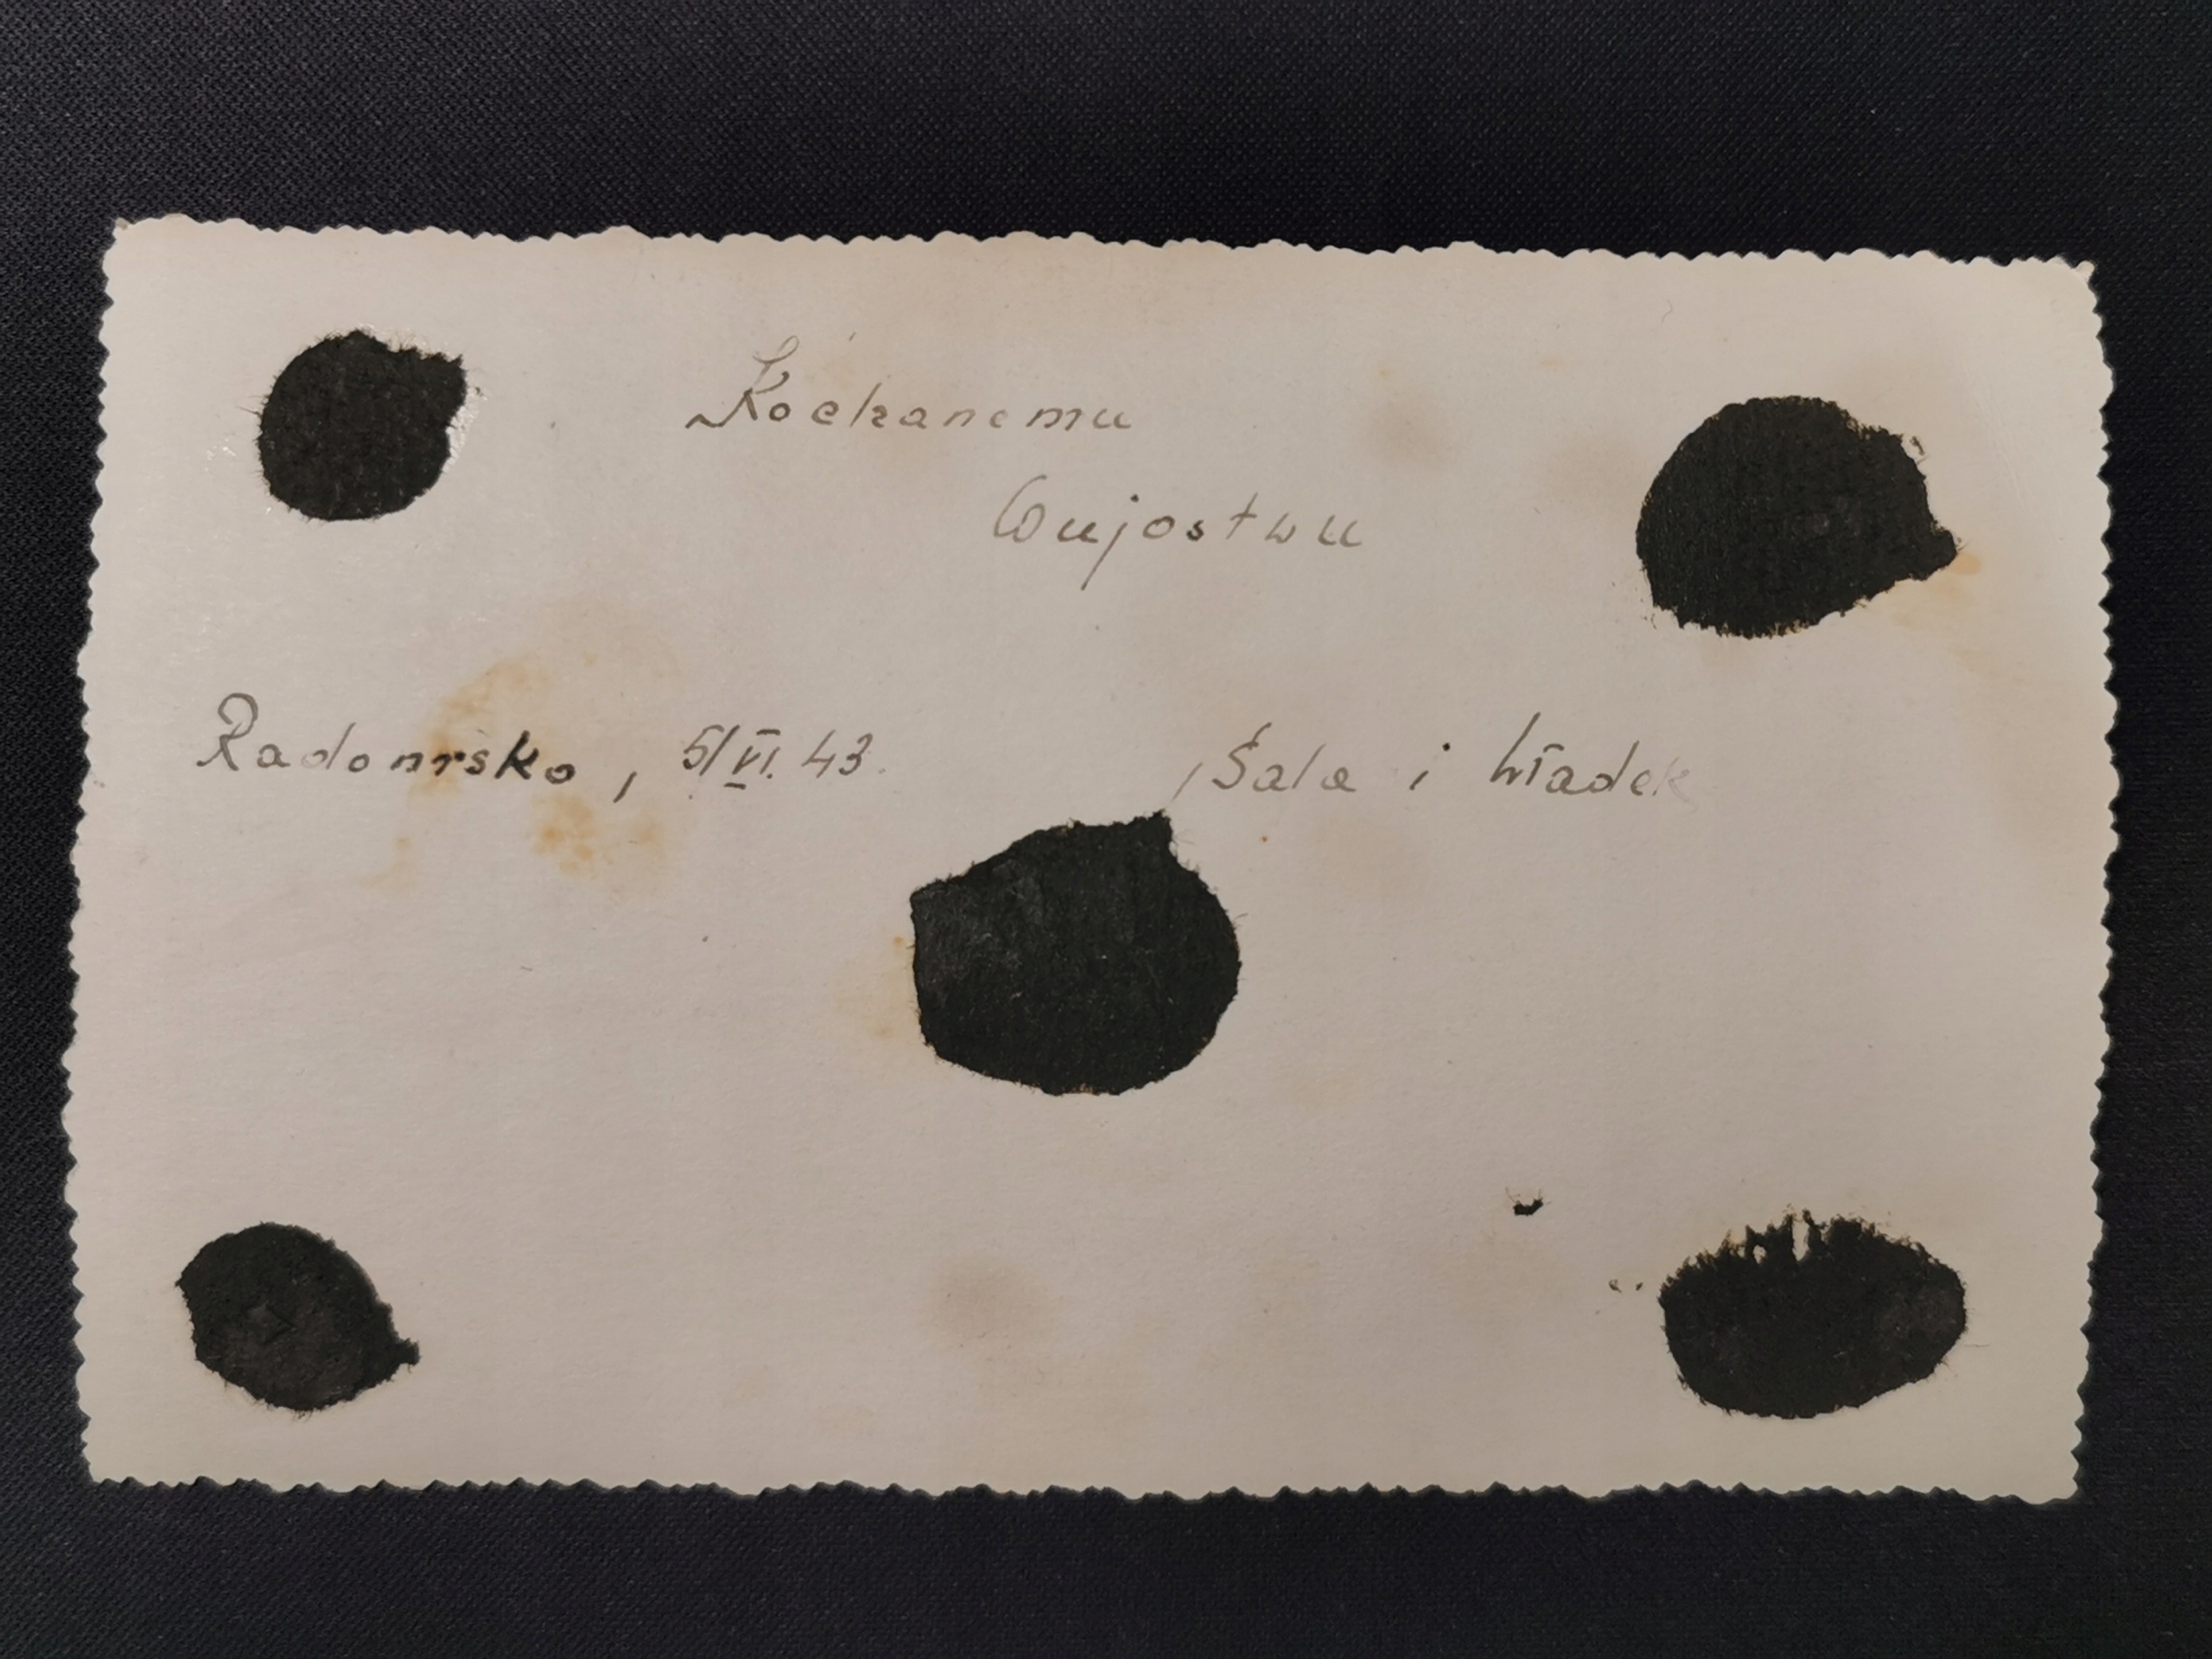 Kochanemu
Wujostwu
Radomsko, 5/VI. 43.
Sala i Władek